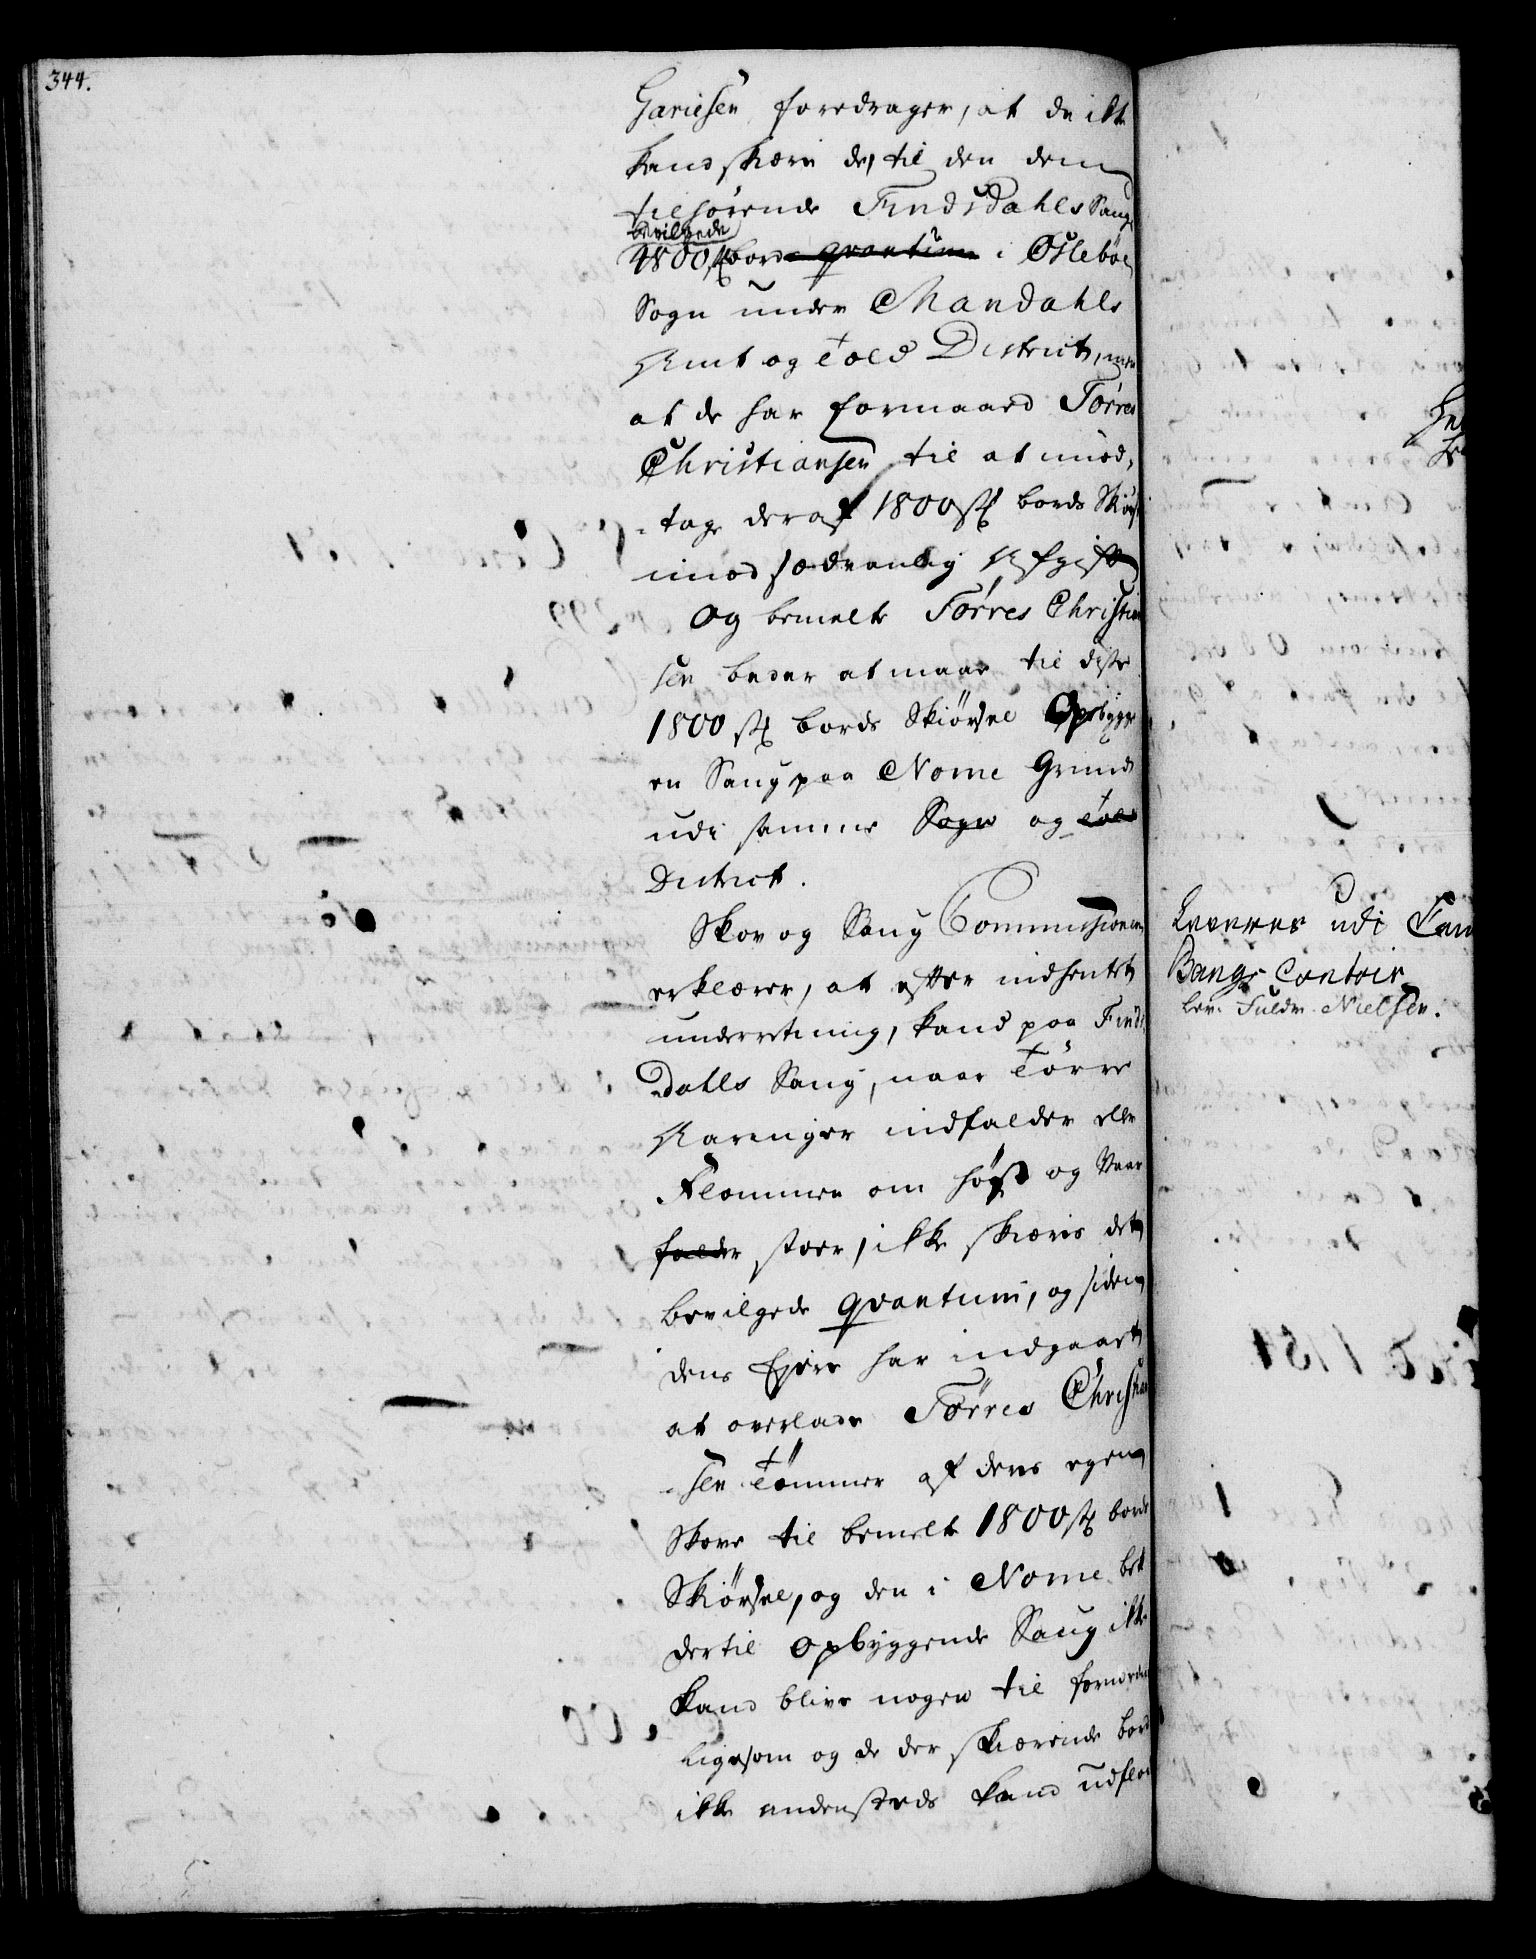 344.
Gariesen foredrager, at de ikke
kand skiære de, til den dem
tilhørende Findsdahls Saug
bevilgede
4800 st bord qvantum i Øslebøe
Sogn under Mandahls
Amt og Told District, men
at de har formaaed Tørres
Christiansen til at imod-
tage deraf 1800 st bords Skiørsel
imod sædvanlig Afgift
Og bemelte Tørres Christian
sen beder at maae til disse
1800 st bords Skiørsel Opbygge
en Saug paa Nome Grund
udi samme Sogn og Told
District.
Skov og Saug Commissionen
erklærer, at efter indhentet
underretning, kand paa Finds
Dahls Saug, naar Tørre
Aaringer indfalder eller
Flommen om høst og Vaar
falder stoer, ikke skiæres det
bevilgede qvantum, og siden
dens Ejere har indgaaet
at overlade Tørres Christian
sen Tømmer af deres egen
Skove til bemelte 1800 st bords
Skiørsel, og den i Nome
dertil opbyggende Saug ikke
kand blive nogen til fornær
ligesom og de der skiærende bord
ikke andensteds kand udflod
Leveres udi
Bangs Contoir
lev. Fuldm. Nielsen.